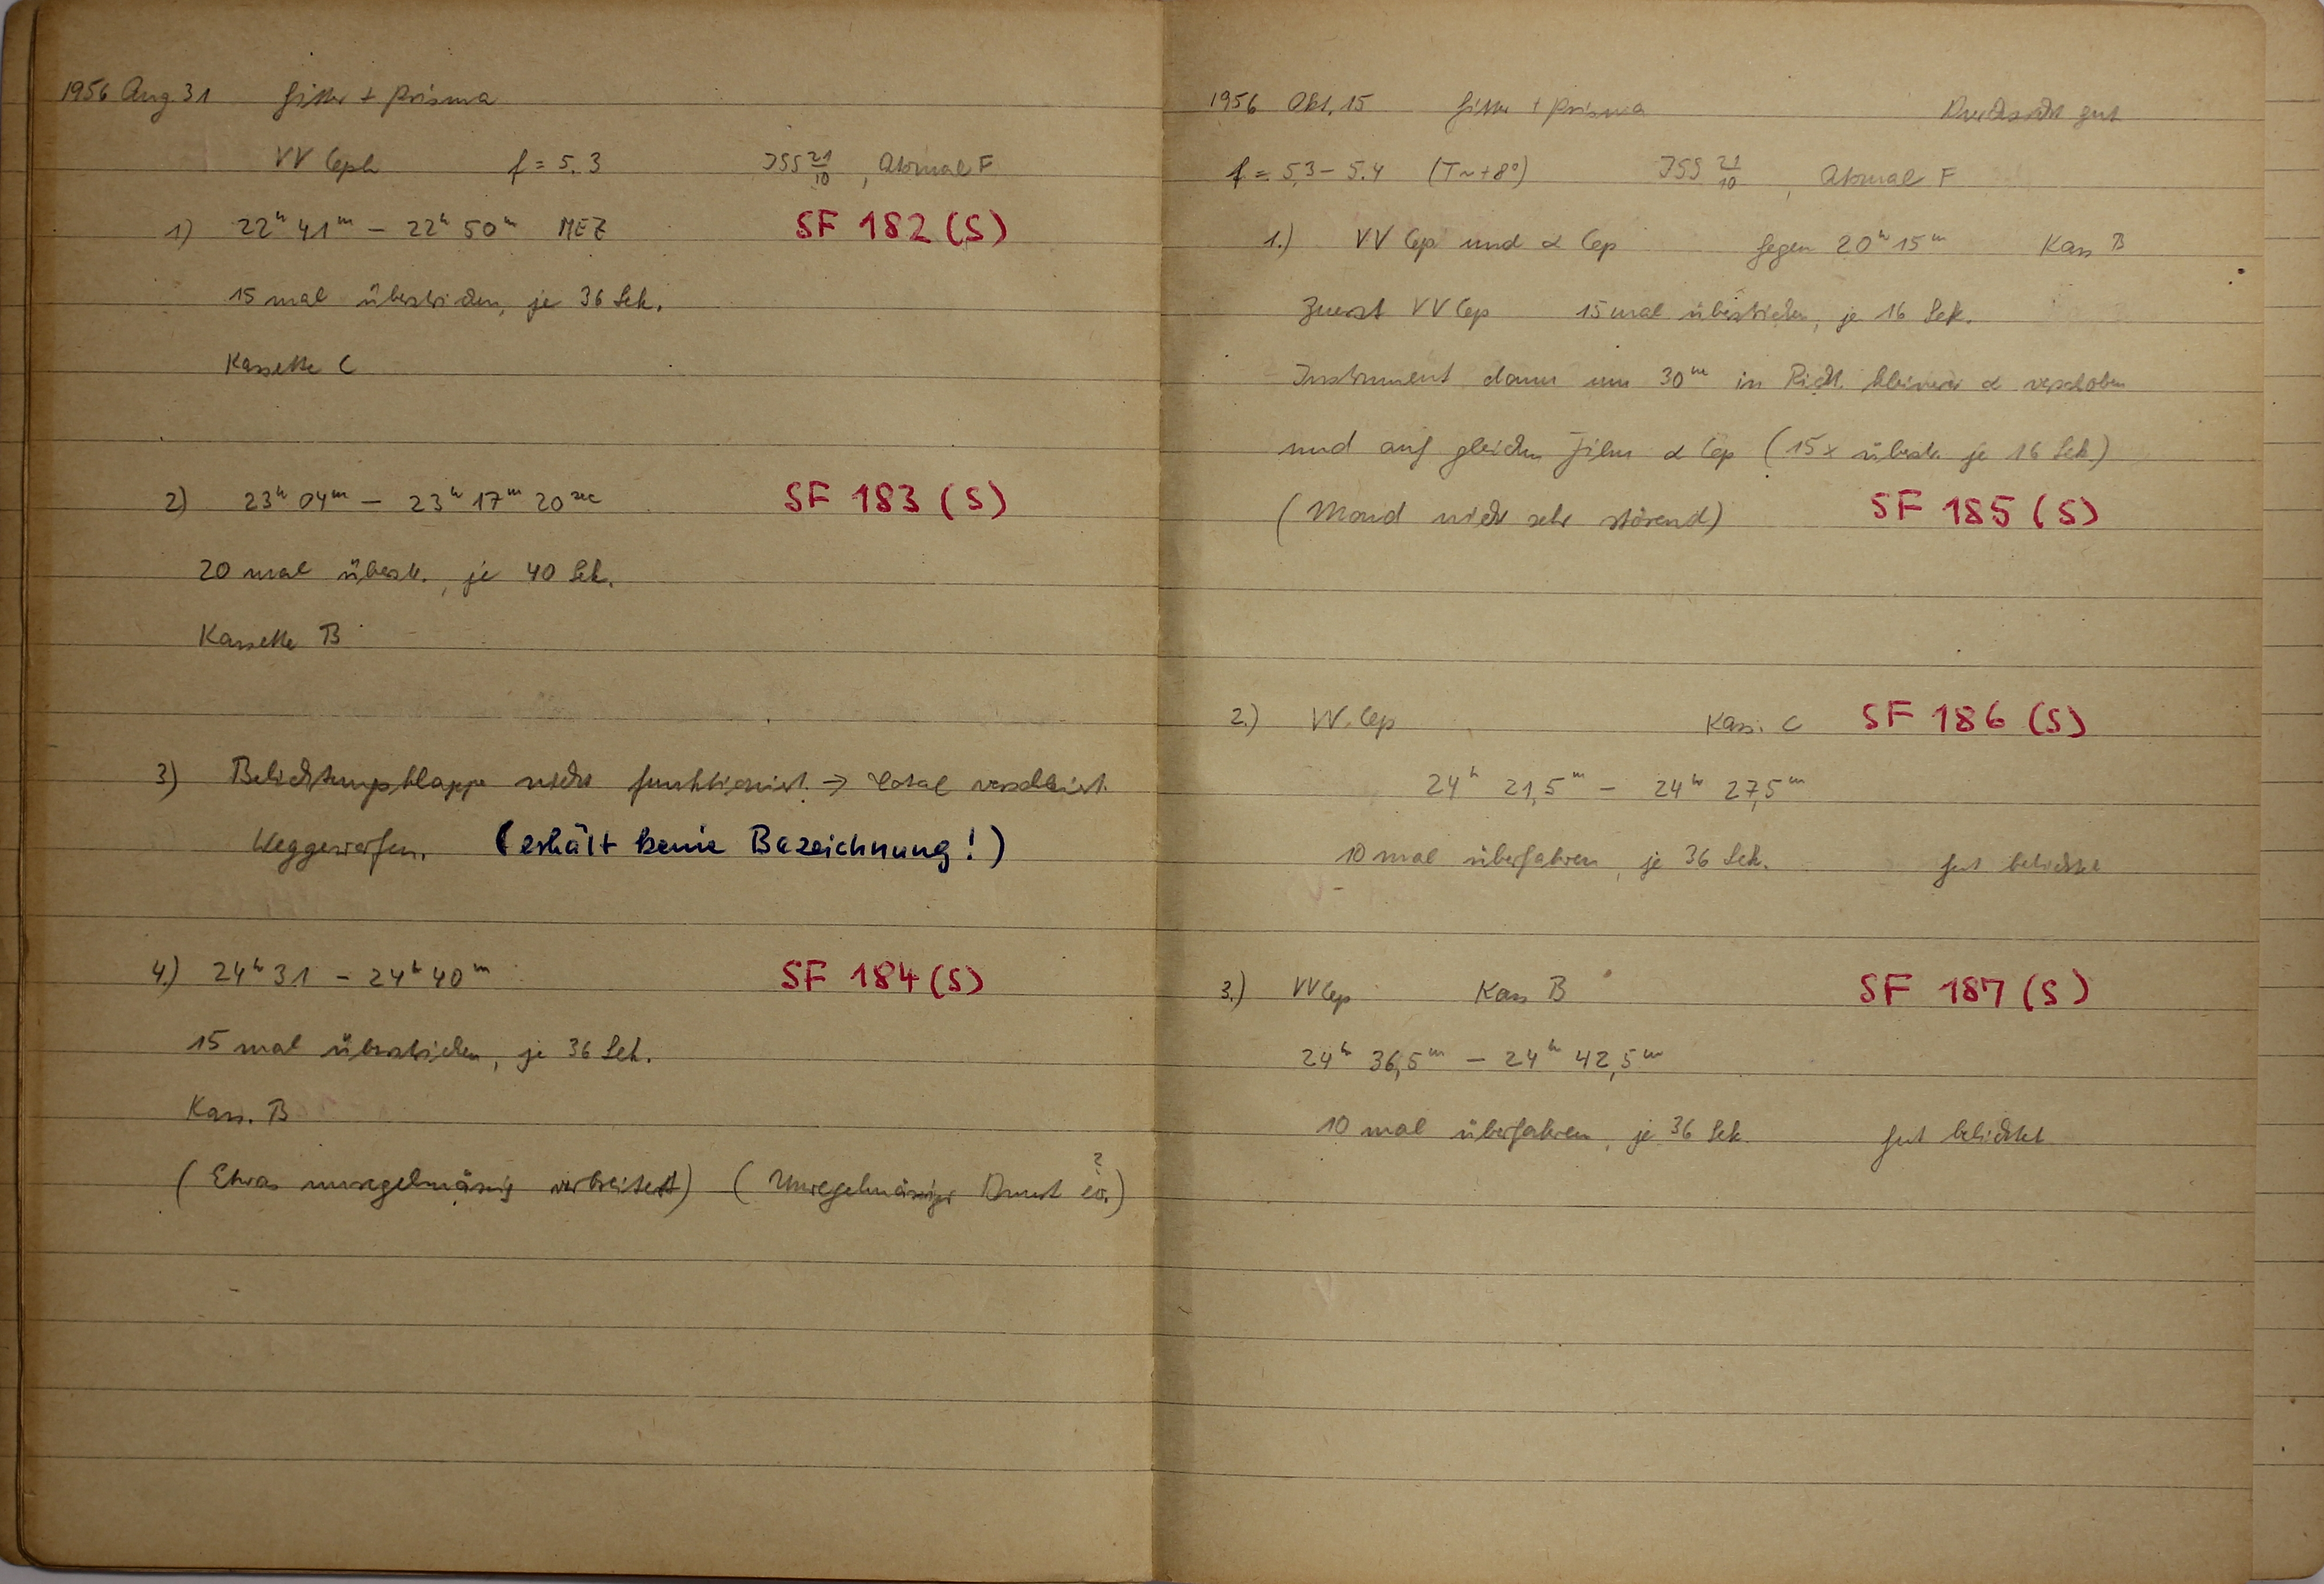 1956 Aug. 31 Gitter + Prisma
VV Ceph f = 5.3 ISS 21/10, Atomal F
1) 22h 41m – 22h 50m MEZ SF 182 (S)
15 mal überstrichen, je 36 Sek.
Kassette C
2) 23h 04m – 23h 17m 20sec SF 183 (S)
20 mal überstr., je 40 Sek.
Kassette B
3) Belichtungsklappe nicht funktioniert → total verschleiert.
Weggeworfen. (erhält keine Bezeichnung!)
4.) 24h 31 – 24h 40m SF 184 (S)
15 mal überstrichen, je 36 Sek.
Kass. B
(Etwas unregelmässig verbreitert) (Unregelmässiger Dunst ev.?)
1956 Okt. 15 Gitter + Prisma Durchsicht gut
f = 5,3 – 5.4 (T ~ +8°) ISS 21/10, Atomal F
1.) VV Cep und α Cep Gegen 20h 15m Kass B
Zuerst VV Cep 15 mal überstrichen, je 16 Sek.
Instrument dann um 30m in Richt. kleinerer α verschoben
und auf gleichen Film α Cep (15x überstr. je 16 Sek.)
(Mond nicht sehr störend) SF 185 (S)
2.) VV Cep Kass. C SF 186 (S)
24h 21,5m – 24h 27,5m
10 mal überfahren, je 36 Sek. gut belichtet
3.) VV Cep Kass B SF 187 (S)
24h 36,5m – 24h 42,5m
10 mal überfahren, je 36 Sek. gut belichtet